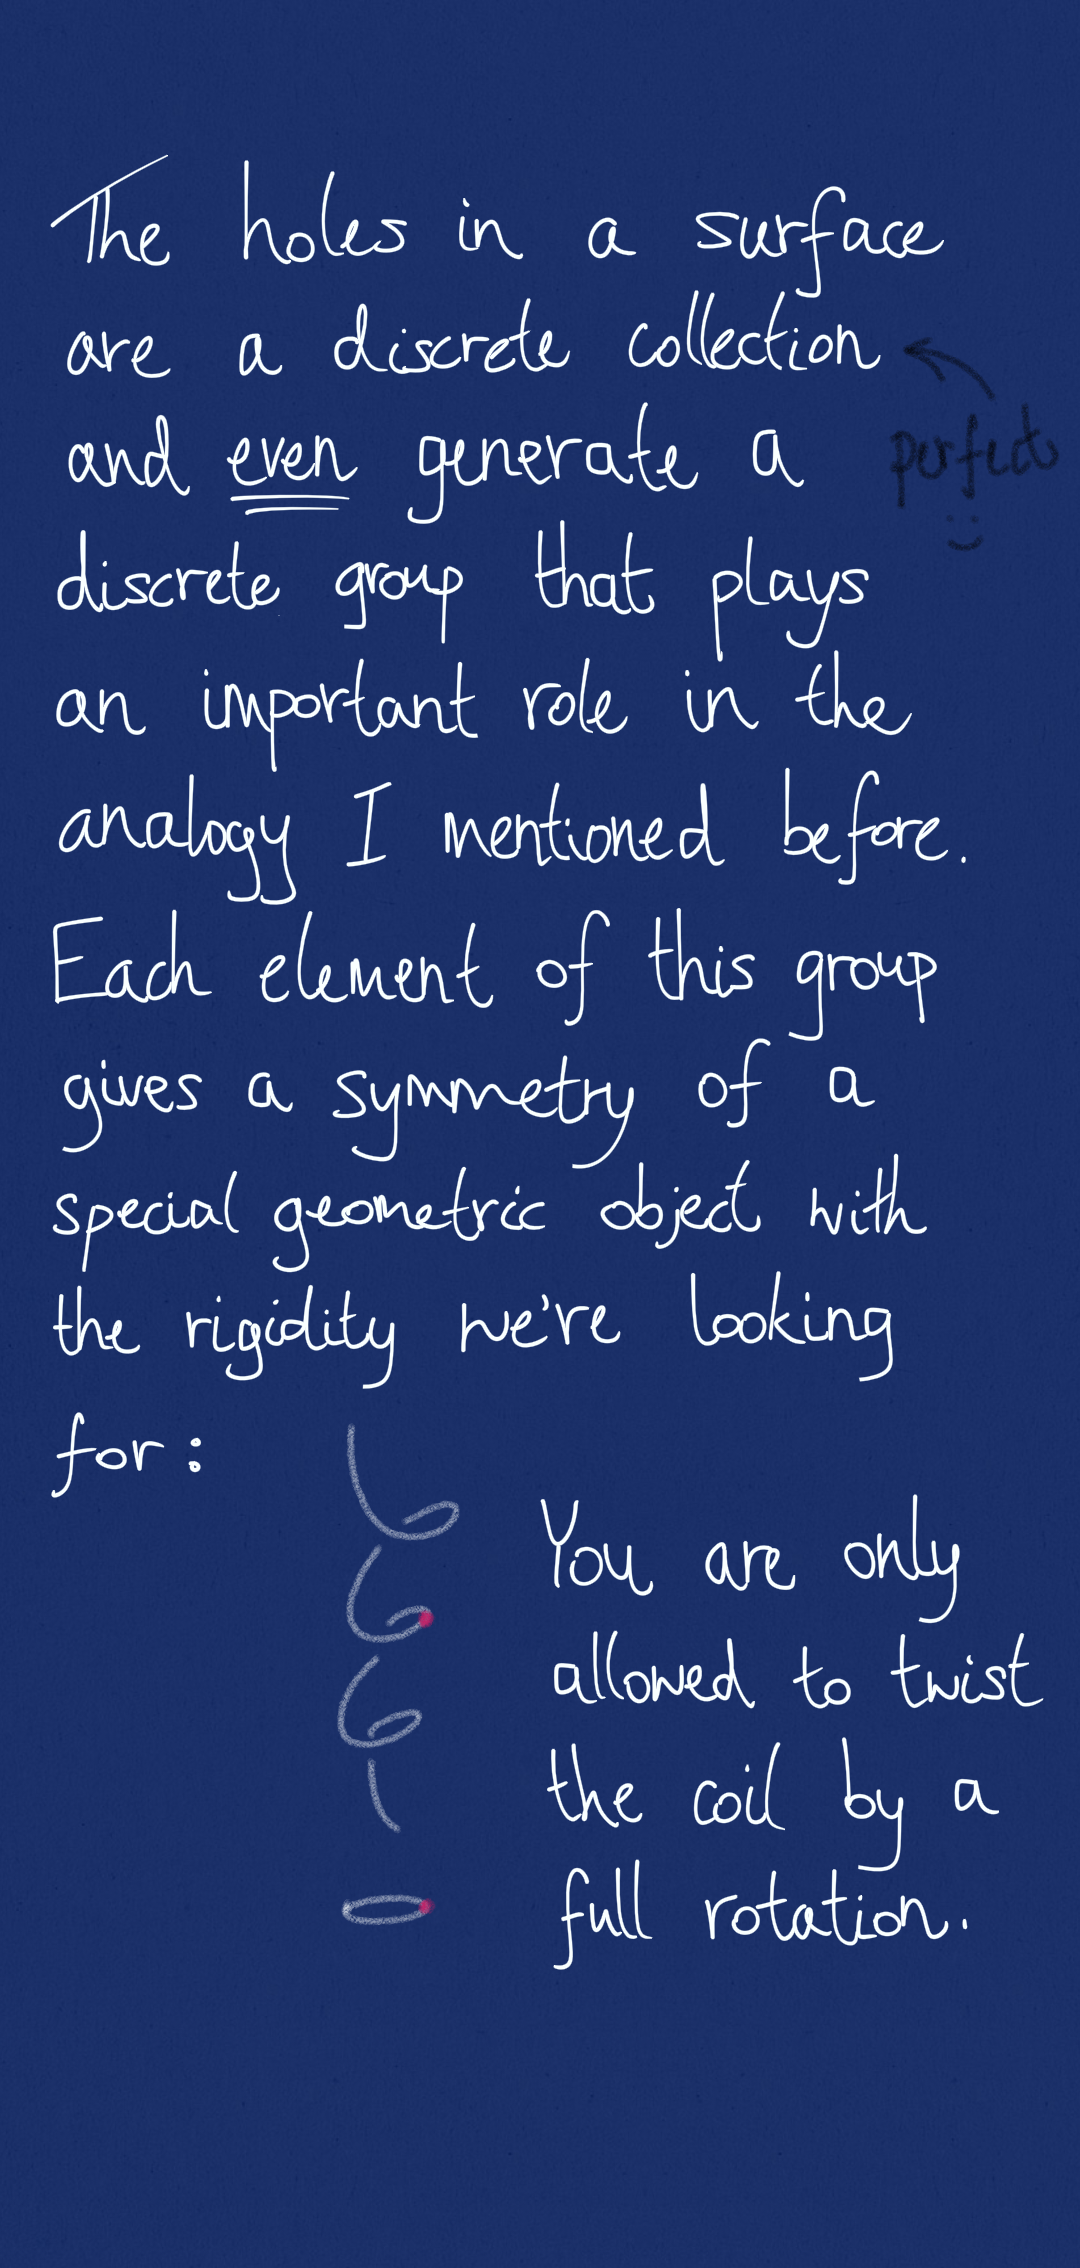 The holes in a surface
are a discrete collection
perfect
:)
and even generate a
discrete group that plays
an important role in the
analogy I mentioned before.
Each element of this group
gives a symmetry of a
special geometric object with
the rigidity we're looking
for:
You are only
allowed to twist
the coil by a
full rotation.